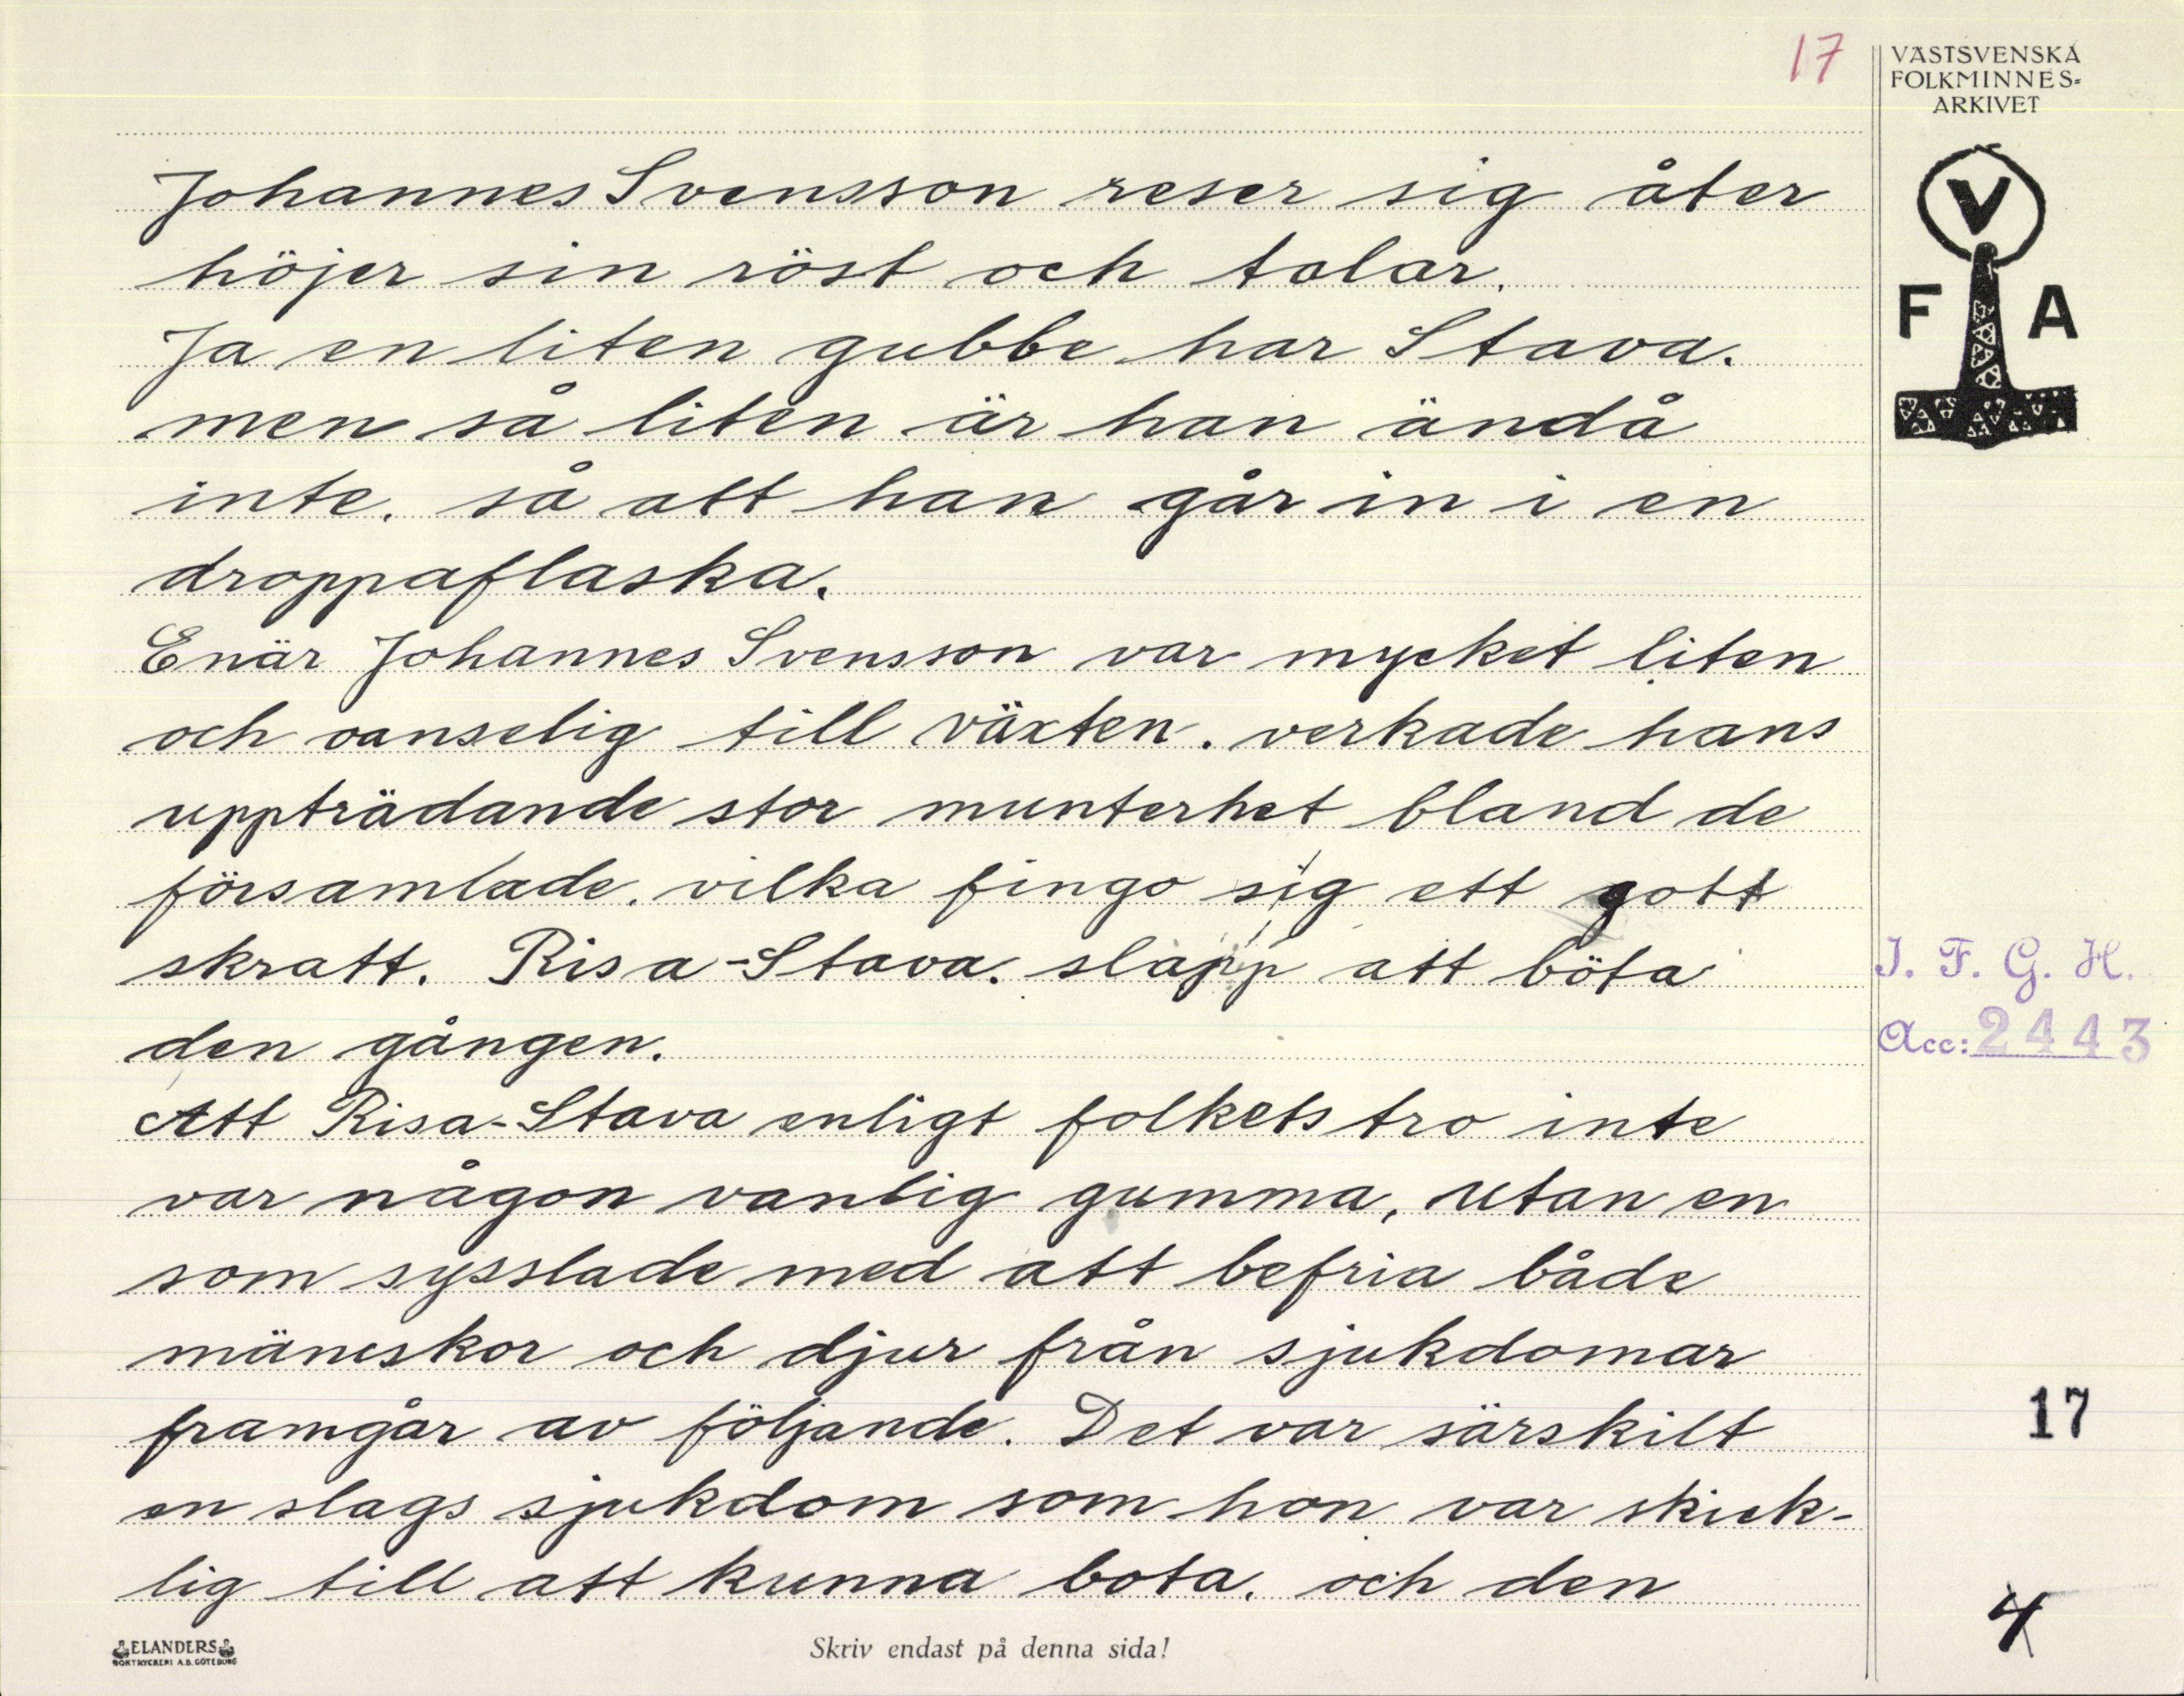 17
VÄSTSVENSKA
FOLKMINNES-
ARKIVET
V
F A
Johannes Svensson reser sig åter
höjer sin röst och talar.
Ja en liten gubbe har Stava.
men så liten är han ändå
inte. så att han går in i en
droppaflaska.
Enär Johannes Svensson var mycket liten
och oanselig till växten. verkade hans
uppträdande stor munterhet bland de
församlade. vilka fingo sig ett gott
skratt. Risa-Stava. slapp att böta
den gången.
Att Risa-Stava enligt folkets tro inte
var någon vanlig gumma, utan en
som sysslade med att befria både
mäneskor och djur från sjukdomar
framgår av följande. Det var särskilt
en slags sjukdom som hon var skick-
lig till att kunna bota. och den
I. F. G. H.
Acc: 2443
17
4
ELANDERS
BOKTRYCKERI A.B. GÖTEBORG
Skriv endast på denna sida!